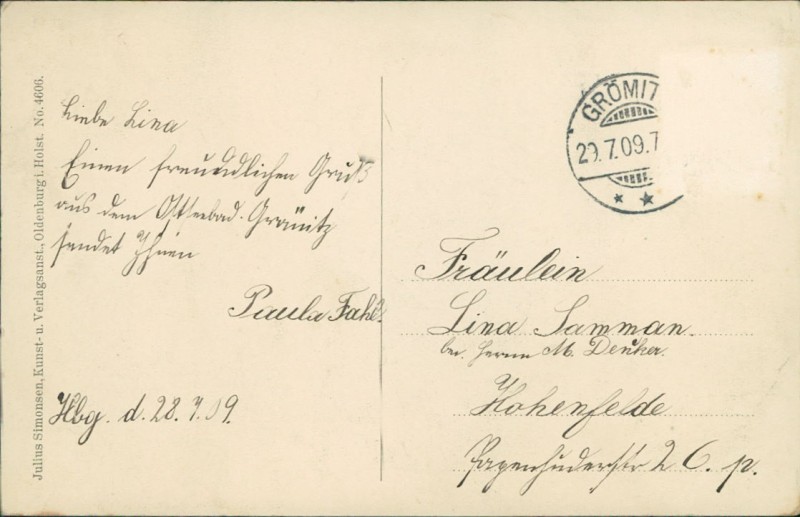 Julius Simonsen, Kunst- u. Verlagsanst., Oldenburg i. Holst. No. 4606.
Liebe Lina
Einen freundlichen Gruß
aus dem Ostseebad. Grömitz
sendet Ihnen
Paula Fahl.
Hbg. d. 28.7.09.
GRÖMIT
29.7.09.7
Fräulein
Lina Samman.
bei Herrn M. Denker.
Hohenfelde
Papenhuderstr 26. p.